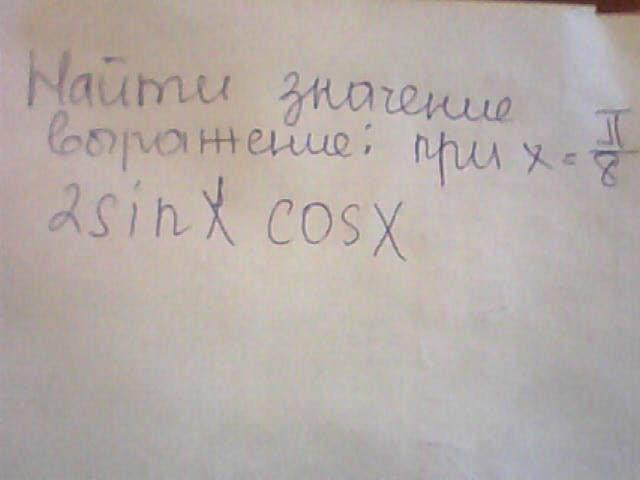 Найти значение
выражение: при x = π/8
2sinx cosx